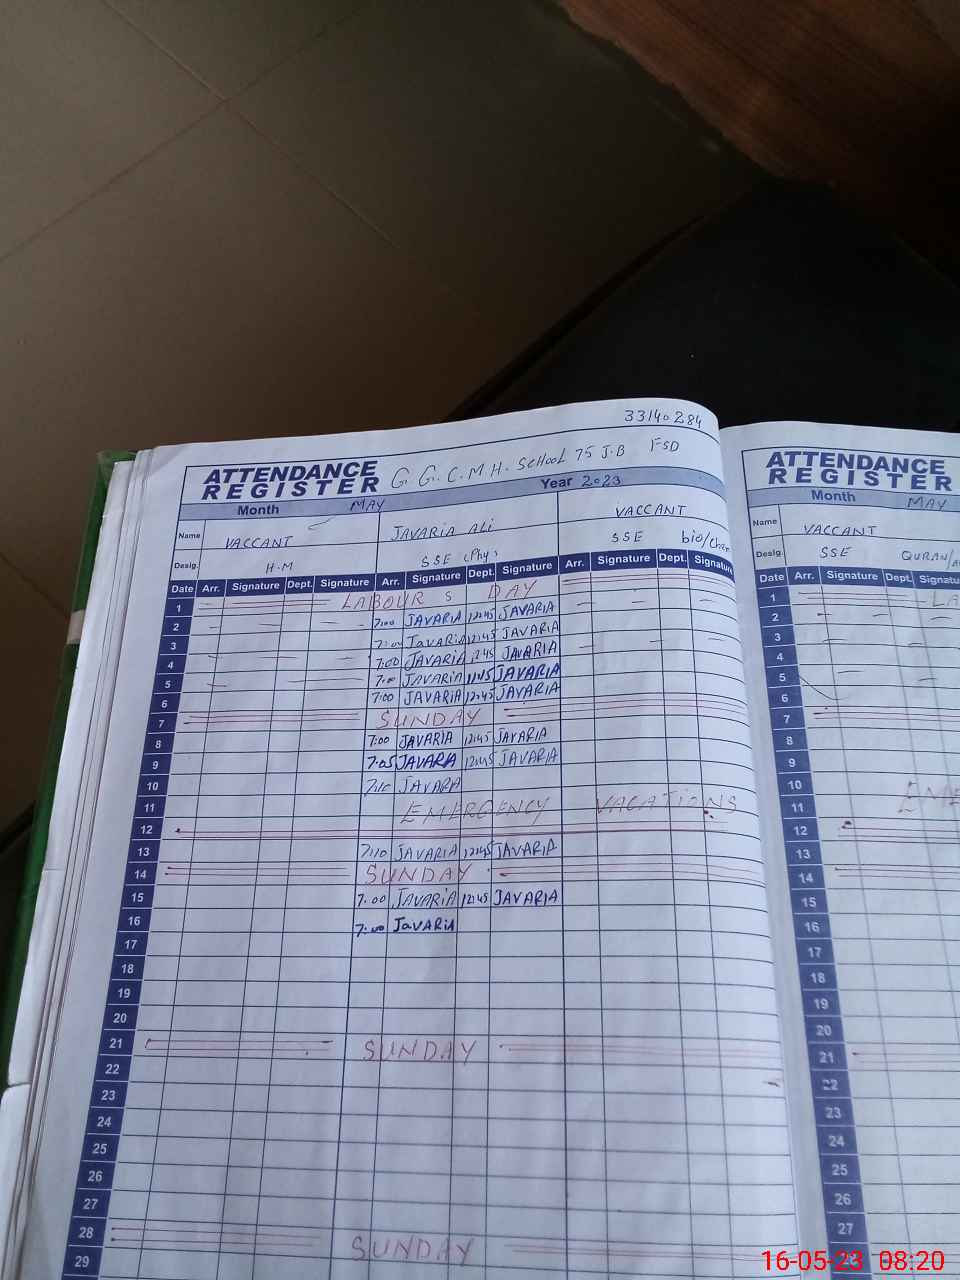 33140284
ATTENDANCE REGISTER G.G.C.M.H. SCHOOL 75 J.B FSD
Month MAY Year 2023
Name VACCANT JAVARIA ALI VACCANT
Desig. H.M SSE (Phy) SSE bio/Chem
Date Arr. Signature Dept. Signature Arr. Signature Dept. Signature Arr. Signature Dept. Signature
1 LABOUR S DAY
2 7:00 JAVARIA 12:45 JAVARIA
3 7:00 JavaRiA 12:45 JAVARIA
4 7:00 JAVARIA 12:45 JAVARIA
5 7:00 JAVARIA 11:45 JAVARIA
6 7:00 JAVARIA 12:45 JAVARIA
7 SUNDAY
8 7:00 JAVARIA 12:45 JAVARIA
9 7:05 JAVARIA 12:45 JAVARIA
10 7:10 JAVARA
11 EMERGENCY VACATIONS
12
13 7:10 JAVARIA 12:45 JAVARIA
14 SUNDAY
15 7:00 JAVARIA 12:45 JAVARIA
16 7:00 JavaRiA
17
18
19
20
21 SUNDAY
22
23
24
25
26
27
28 SUNDAY
29
ATTENDANCE REGISTER
Month MAY
Name VACCANT
Desig. SSE QURAN/
Date Arr. Signature Dept. Signatu
1 LA
2
3
4
5
6
7
8
9
10
11 EME
12
13
14
15
16
17
18
19
20
21
22
23
24
25
26
27
28
16-05-23 08:20